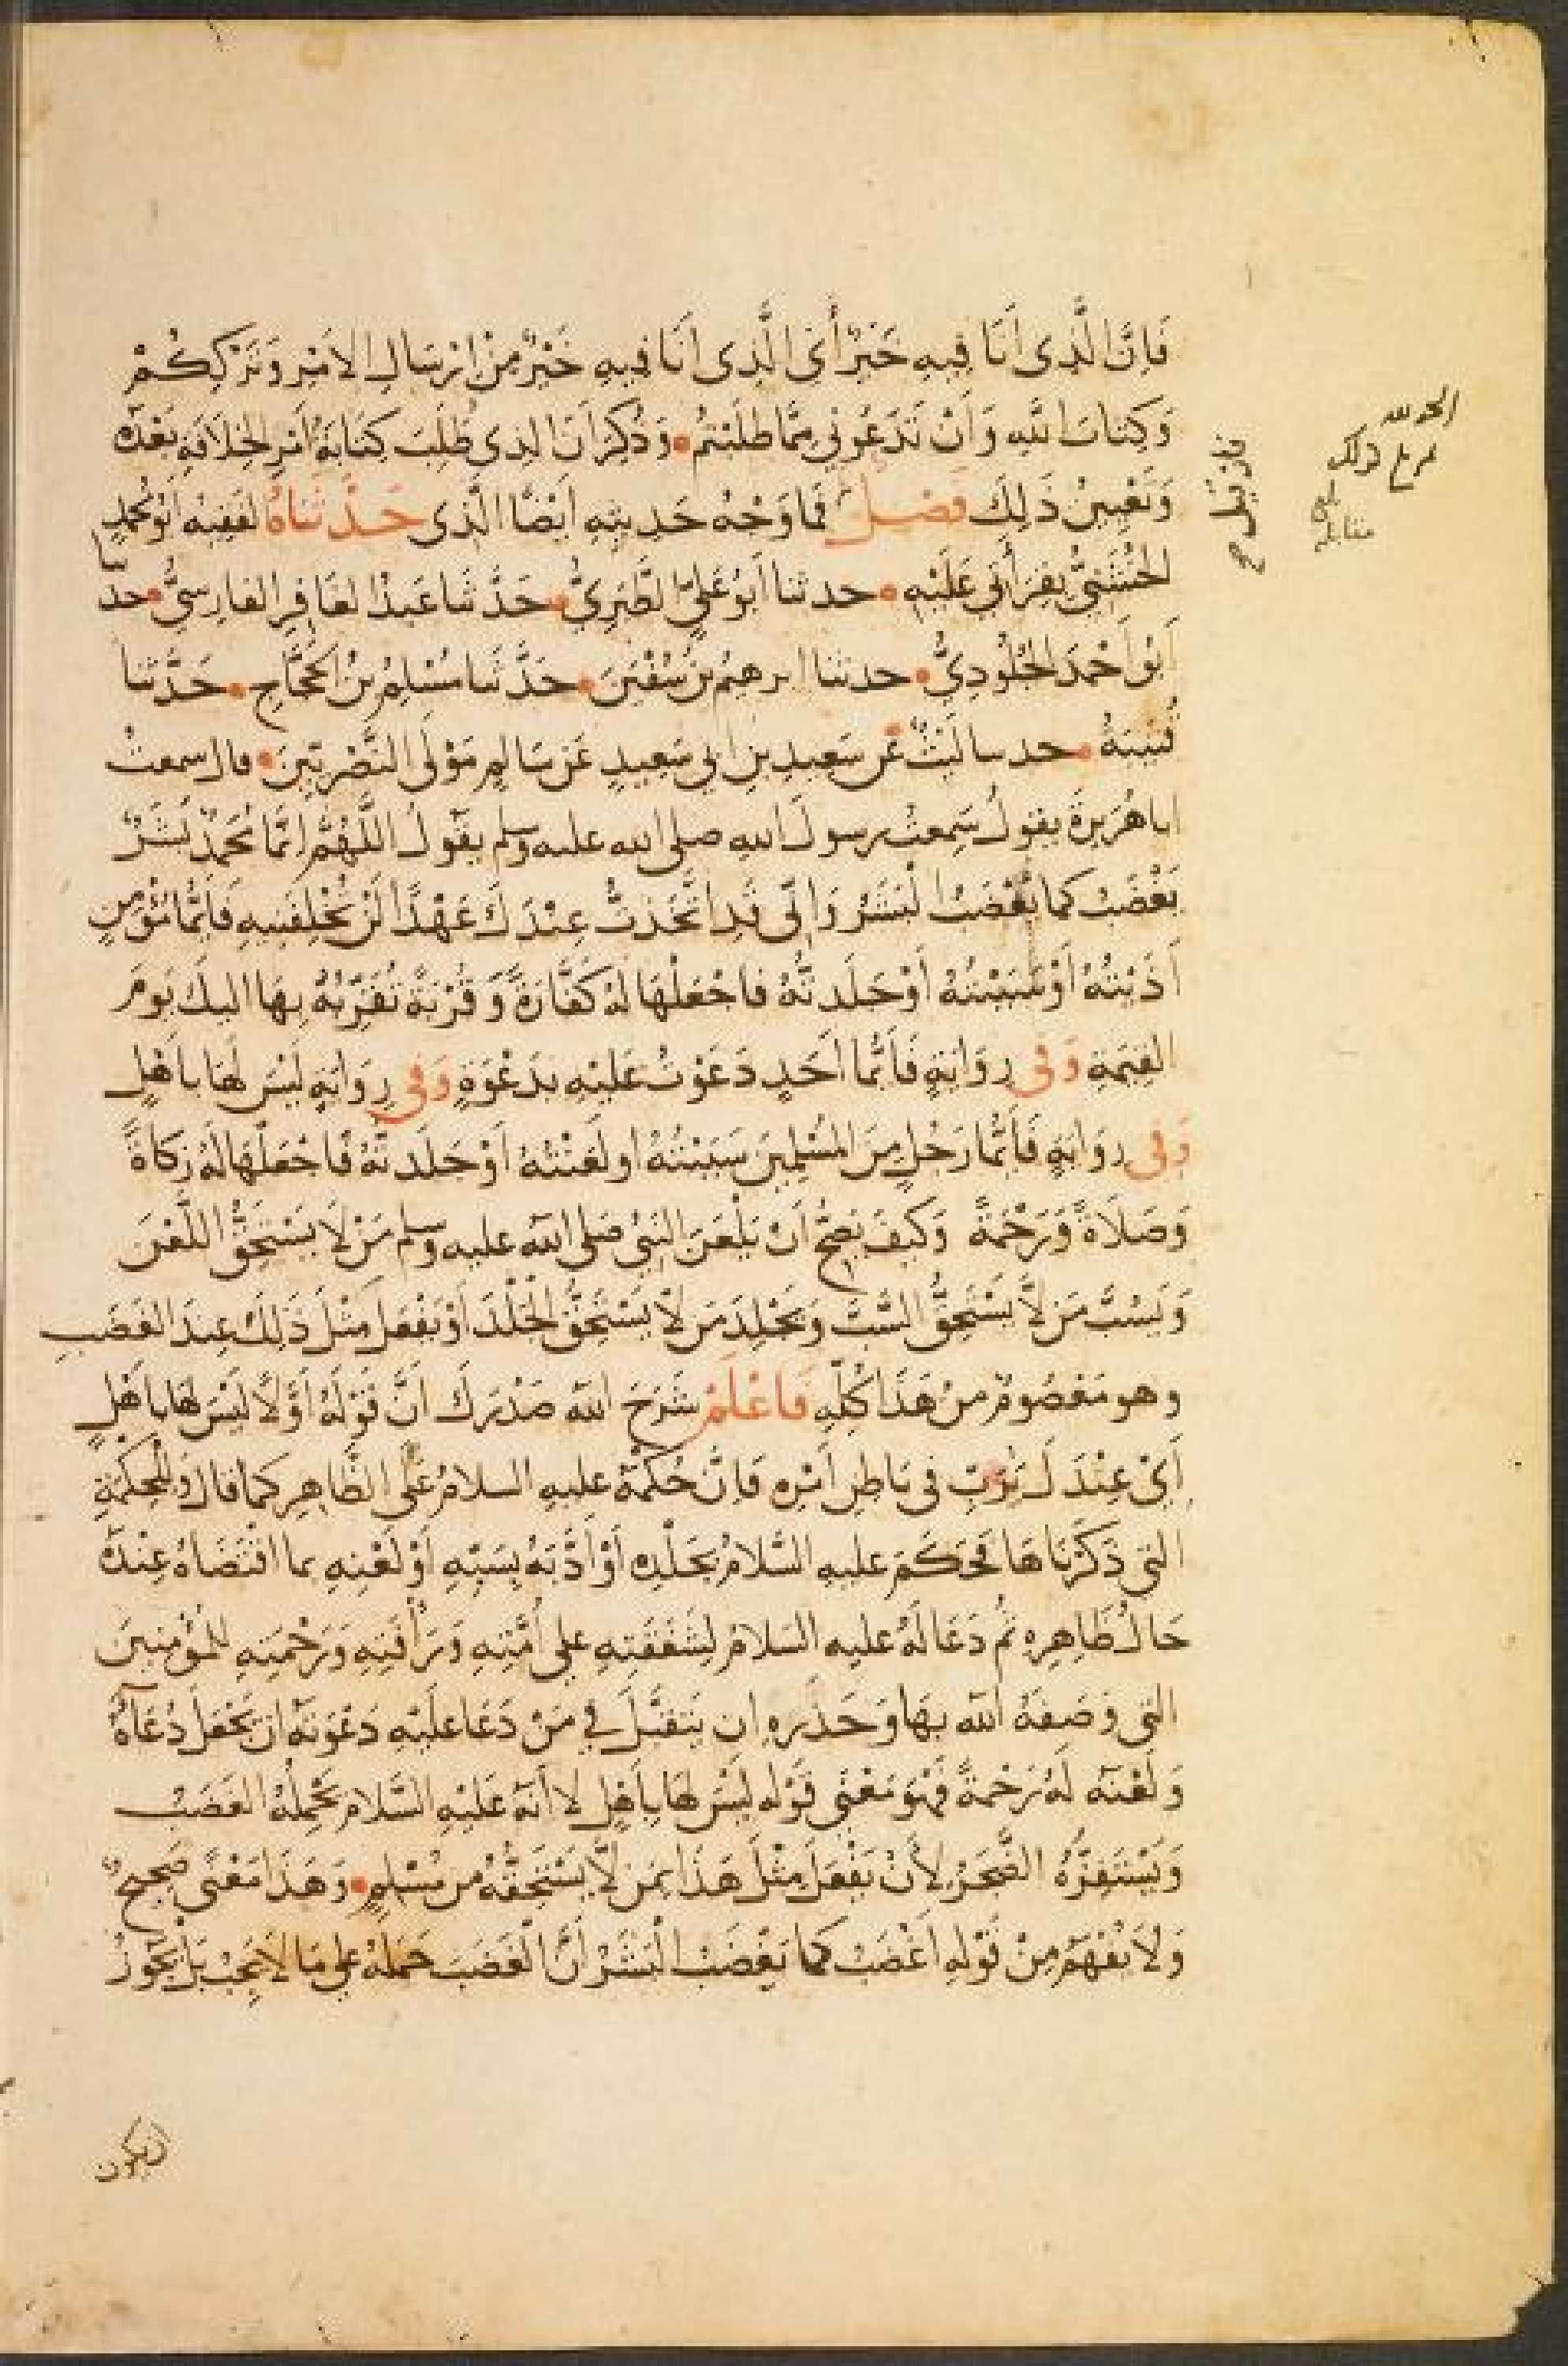 فَاِنَّ الَّذِى اَنَا فِيهِ خَيْرٌ أَىِ الَّذِى اَنَا فِيهِ خَيْرٌ مِنْ اِرْسَالِ الاَمْرِ وَتَرْكِكُمْ
وَكِتَابَ اللهِ وَاَنْ تَدَعُونِى مِمَّا طَلَبْتُمْ وَذُكِرَ اَنَّ الذِى طُلِبَ كِتَابَةُ اَمْرِ الخِلَافَةِ بَعْدَهُ
وَتَعْيِينُ ذَلِكَ فصْل فَمَا وَجْهُ حَدِيثِهِ اَيْضًا الَّذِى حَدَّثَنَاهُ الفَقِيهُ اَبُو مُحَمدٍ
الخُشَنِىُّ بِقِرَأَتِى عَلَيْهِ حدثنا اَبُو عَلِىٍّ الطَّبَرِىُّ حَدَّثَنَا عَبْدُ الغَافِرِ الفَارِسِىُّ حدّثنا
اَبُو اَحْمَدَ الجُلُودِىُّ حدثنا ابرهيمُ بنُ سُفْيَنَ حَدَّثَنَا مُسْلِمُ بنُ الحَجَّاجِ حَدَّثنا
قُتَيْبَةُ حدثنا لَيْثٌ عَن سَعِيدِ بنِ اَبِى سَعِيدٍ عَن سَالِمٍ مَوْلَى النَّصْرِيِّينَ قال سمعتُ
ابا هُرَيرَةَ يقولُ سَمِعتُ رسولَ اللهِ صلى الله عليه وسلم يقولُ اللَّهُمَّ اِنَّمَا مُحَمدٌ بَشَرٌ
يَغْضَبُ كما يَغْضَبُ البَشَرُ وَاِنِّى قَدِ اتَّخَذتُ عِنْدَكَ عَهْدًا لَنْ تُخْلِفَنِيهِ فَاَيُّمَا مُؤْمِنٍ
اَذَيْتُهُ اَوْ سَبَبْتُهُ أَوْ جَلَدتُّهُ فاجْعَلْهَا لَهُ كَفَّارَةً وَقُرْبَةً تُقَرِّبُهُ بِهَا اليكَ يَومَ
القِيَمَةِ وَفى رِوَايَةٍ فَاَيُّمَا اَحَدٍ دَعَوْتُ عَلَيْهِ بِدَعْوَةٍ وَفى رِوَايَةٍ لَيْسَ لَهَا بِاَهْلٍ
وَفى رِوَايَةٍ فَاَيُّمَا رَجُلٍ مِنَ المُسْلِمِينَ سَبَبْتُهُ او لَعَنْتُهُ اَوْ جَلَدتُّهُ فَاجْعَلْهَا لَهُ زَكَاةً
وَصَلَاةً وَرَحْمَةً وَكَيفَ يَصِحُّ اَنْ يَلْعَنَ النبِىُّ صَلى اللهُ عليه وسلم مَنْ لَا يَسْتَحِقُّ اللَّعْنَ
وَيَسُبَّ مَن لَّا يَسْتَحِقُّ السَّبَّ وَيَجْلِدَ مَن لَا يَسْتَحِقُّ الجَلْدَ اَوْ يَفْعَلَ مِثْلَ ذَلِكَ عِندَ الغَضَبِ
وهو مَعْصُومٌ مِنْ هَذَا كُلِّهِ فَاعْلَمْ شَرَحَ اللهُ صَدْرَكَ اَنَّ قَوْلَهُ اَوَّلاً لَيْسَ لهَا بِاَهْلٍ
اَىْ عِنْدَكَ يَرَبِّ فى بَاطِنِ اَمْرِهِ فَاِنَّ حُكْمَهُ عليه السلامُ عَلَى الظَّاهِرِ كما قالَ وَللحِكْمَةِ
التى ذَكَرْنَاهَا فَحَكَمَ عليه السَّلامُ بِجَلْدِهِ أَوْ أَدَّبَهُ بِسَبِّهِ اَوْ لَعْنِهِ بما اقْتَضَاهُ عِنْدَهُ
حَالُ ظَاهِرِهِ ثُم دَعَا لَهُ عليه السَلامُ لِشَفَقَتِهِ على اُمَّتِهِ وَرَأْفَتِهِ وَرَحْمَتِهِ للمُؤمِنِينَ
التى وَصَفَهُ اللهُ بِهَا وَحَذَرِهِ ان يَتَقَبَّلَ فِى مَنْ دَعَا عَلَيْهِ دَعْوَتَهُ ان يَجْعَلَ دُعَآءَهُ
وَلَعْنَه لَهُ رَحْمَةً فَهُوَ مَعْنَى قَوْلِه لَيْسَ لهَا بِاَهْلٍ لا أَنَّهُ عَلَيْهِ السَّلام يَحْمِلُهُ الغَضَبُ
وَيَسْتَفِزُّهُ الضَّجَرُ لأَنْ يَفْعَلَ مِثْلَ هَذَا بِمَن لَّا يَسْتَحِقُّهُ مِن مُسْلِمٍ وَهَذَا مَعْنًى صَحِيحٌ
وَلاَ يُفْهَمُ مِنْ قَوْلِهِ اَغْضَبُ كما يَغْضَبُ البَشَرُ اَنَّ الغَضَبَ حَمَلَهُ على مَا لاَ يَجِبُ بَلْ يَجُوزُ
ان يكون
الحمد لله
مقابلة